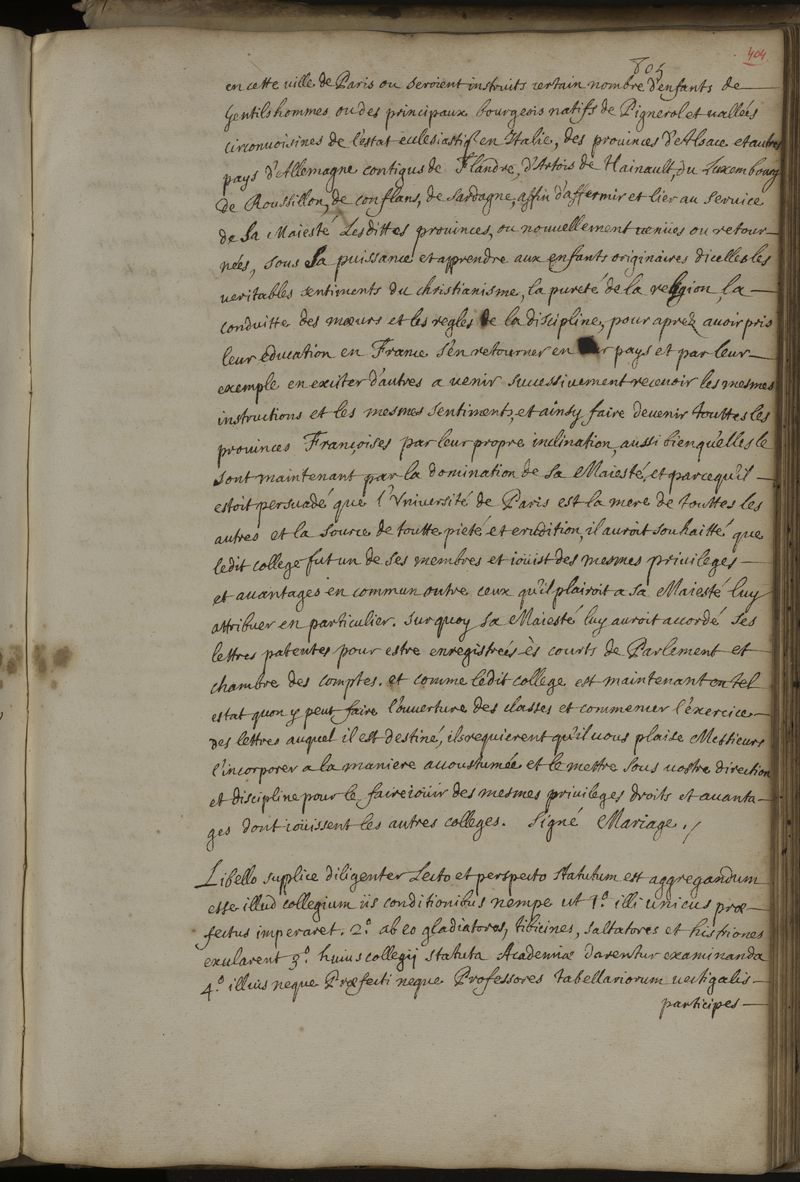 404
804
en cette ville de Paris ou seroient instruits certain nombre d'enfants de
Gentilshommes ou des principaux bourgeois natifs de Pignerol et vallées
circonuoisines de l'estat ecclesiastiq en Italie, des prouinces d'Alsace et autres
pays d'Allemagne contigus de Flandre, d'Artois de Hainault, du Luxembourg
de Roussillon, de conflans, de Sardagne, affin d'affermir et lier au seruice
de Sa Maiesté Lesdittes prouinces, ou nouuellement uenües ou retour-
nées, sous Sa puissance et apprendre aux enfants originaires dicelles les
ueritables sentiments du christianisme, la pureté de la religion, la
conduitte des mœurs et les regles de la discipline, pour aprez auoir pris
leur éducation en France s'en retourner en pays et par leur
exemple en exciter d'autres a uenir successiuement receuoir les mesmes
instructions et les mesmes sentiments, et ainsy faire deuenir touttes les
prouinces Françoises par leur propre inclination, aussi bien qu'elles le
sont maintenant par la domination de Sa Maiesté, et parcequ'il
estoit persuadé que l'Vniuersité de Paris est la mere de touttes les
autres et la source de toutte pieté et erudition, il auroit souhaitté que
ledit college fut un de ses membres et iouist des mesmes priuileges
et auantages en commun outre ceux qu'il plairoit a Sa Maiesté luy
attribuer en particulier. Sur quoy Sa Maiesté luy auroit accordé Ses
lettres patentes pour estre enregistreés ès courts de Parlement et
chambre des comptes. et comme ledit college est maintenant en tel
estat quon y peut faire l'ouuerture des classes et commencer l'éxercice
des lettres auquel il est destiné, ils requierent qu'il uous plaise Messieurs
l'incorporer a la maniere accoustumée et le mettre sous uostre direction
et discipline pour le faire iouir des mesmes priuileges droits et auanta-
ges dont iouissent les autres colleges. Signé Mariage ./
Libello supplice diligenter Lecto et perspecto statutum est aggregandum
esse illud collegium iis conditionibus nempe ut 1.º illi unicus præ-
fectus imperaret. 2.º ab eo gladiatores, tibicines, saltatores et histriones
exularent 3.º huius collegij statuta Academiæ darentur examinanda
4.º illius neque Præfecti neque Professores tabellariorum uectigalis
participes